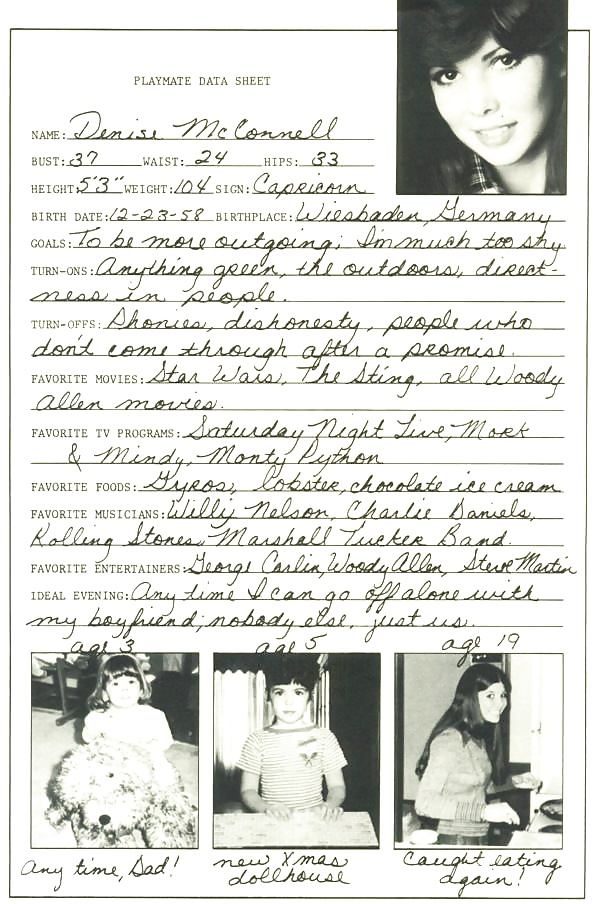 PLAYMATE DATA SHEET
NAME: Denise McConnell
BUST: 37 WAIST: 24 HIPS: 33
HEIGHT: 5'3" WEIGHT: 104 SIGN: Capricorn
BIRTH DATE: 12-23-58 BIRTHPLACE: Wiesbaden, Germany
GOALS: To be more outgoing; I'm much too shy
TURN-ONS: Anything green, the outdoors, direct-
ness in people.
TURN-OFFS: Phonies, dishonesty, people who
don't come through after a promise.
FAVORITE MOVIES: Star Wars, The Sting, all Woody
Allen movies.
FAVORITE TV PROGRAMS: Saturday Night Live, Mork
& Mindy, Monty Python
FAVORITE FOODS: Gyros, lobster, chocolate ice cream
FAVORITE MUSICIANS: Willy Nelson, Charlie Daniels,
Rolling Stones, Marshall Tucker Band.
FAVORITE ENTERTAINERS: George Carlin, Woody Allen, Steve Martin
IDEAL EVENING: Any time I can go off alone with
my boyfriend; nobody else, just us.
age 3 age 5 age 19
Any time, Dad! new Xmas dollhouse Caught eating again!